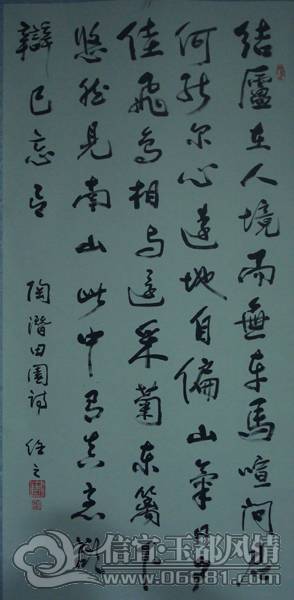 结廬在人境而無车馬喧问君
何能尔心遠地自偏山氣日夕
佳飛鳥相与還采菊东篱下
悠然見南山此中有真意欲
辯已忘言
陶潛田園詩 任之
信宜·玉都风情
www.06681.com